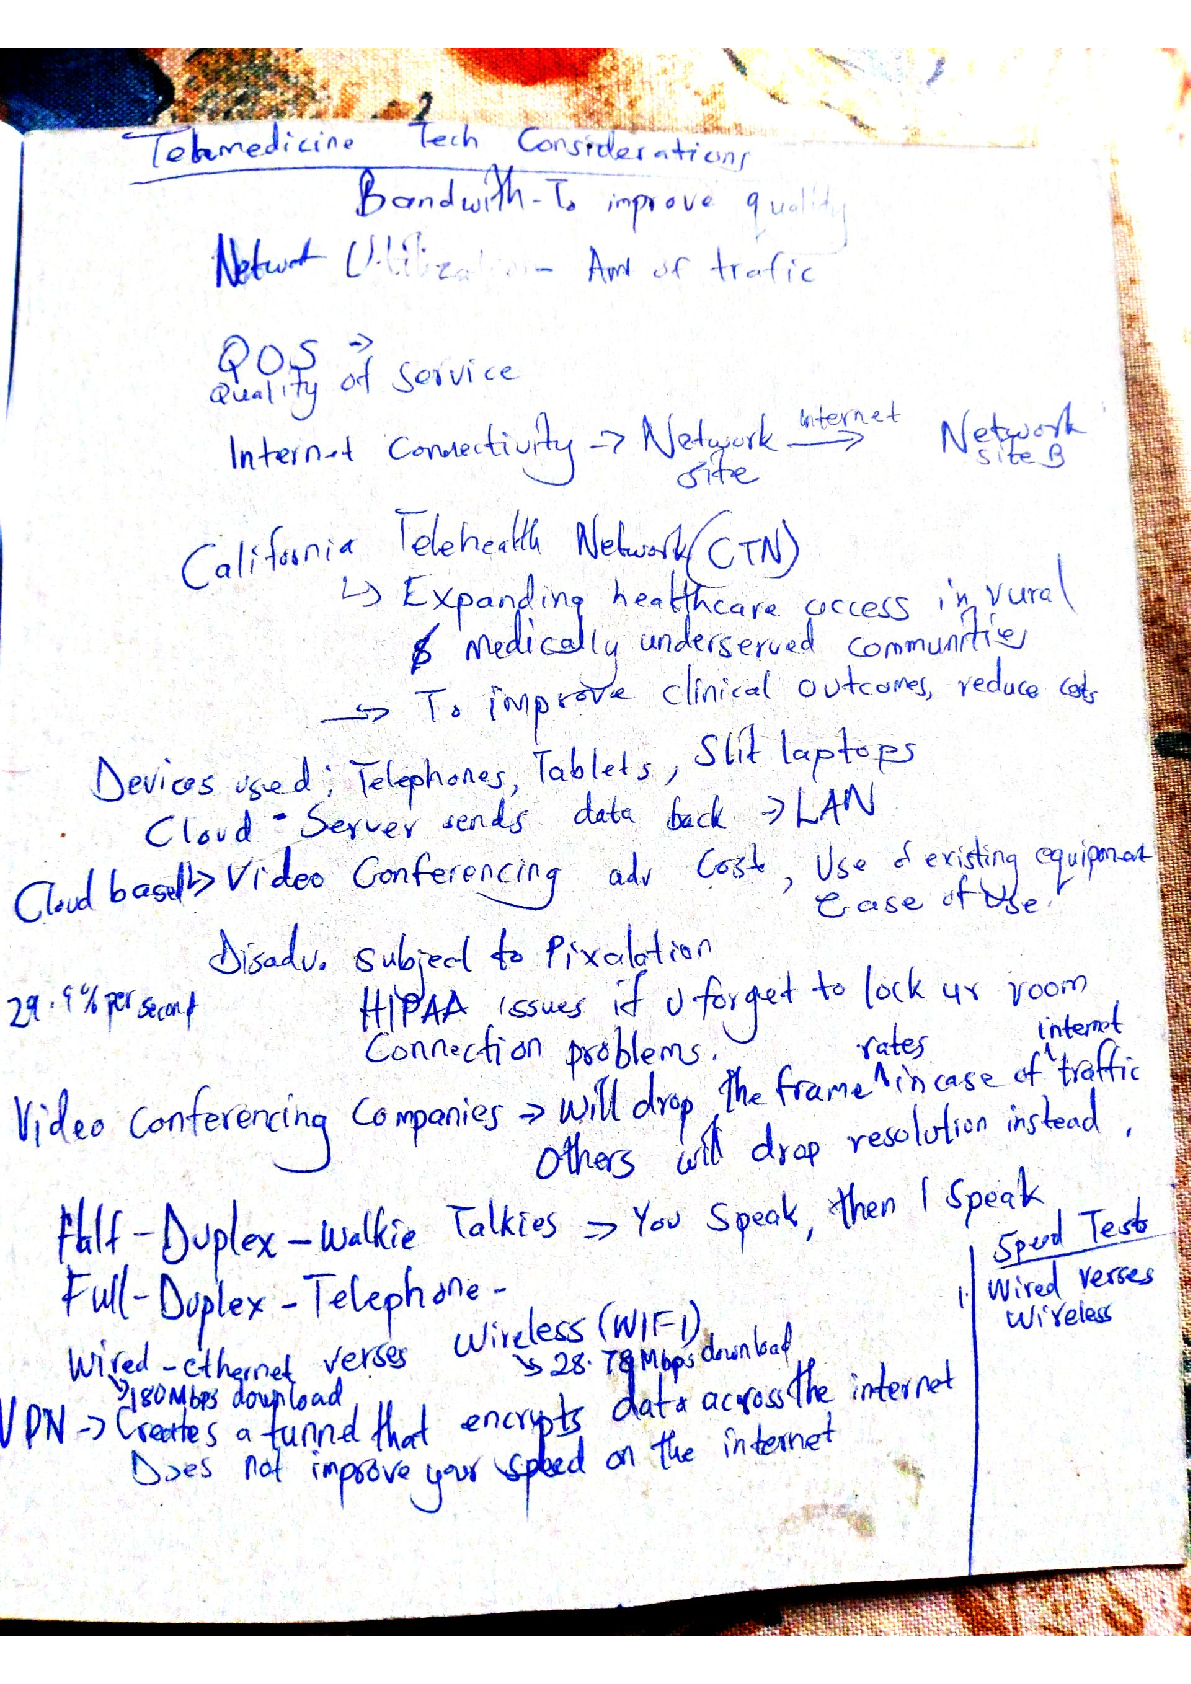 Telemedicine Tech Considerations
Bandwith - To improve quality
Network Utilization - Amt of trafic
QOS →
Quality of Service
Internet Connectivity → Network site —Internet→ Network Site B
California Telehealth Network (CTN)
↳ Expanding healthcare access in rural
& medically underserved communities
→ To improve clinical outcomes, reduce costs
Devices used; Telephones, Tablets, Slit laptops
Cloud - Server sends data back → LAN
Cloud based → Video Conferencing adv Cost, Use of existing equipment
Ease of Use.
Disadv. Subject to Pixalation
29.9% per second
HIPAA issues if u forget to lock ur room
Connection problems.
Video Conferencing Companies → Will drop the frame ^rates in case of ^internet traffic
Others will drop resolution instead.
Half - Duplex - Walkie Talkies → You Speak, then I Speak
Full - Duplex - Telephone -
Wired - ethernet verses Wireless (WIFI)
↳ 180Mbps download
↳ 28.78Mbps download
VPN → Creates a tunnel that encrypts data across the internet
Does not improve your speed on the internet
Speed Test
1. Wired verses
Wireless